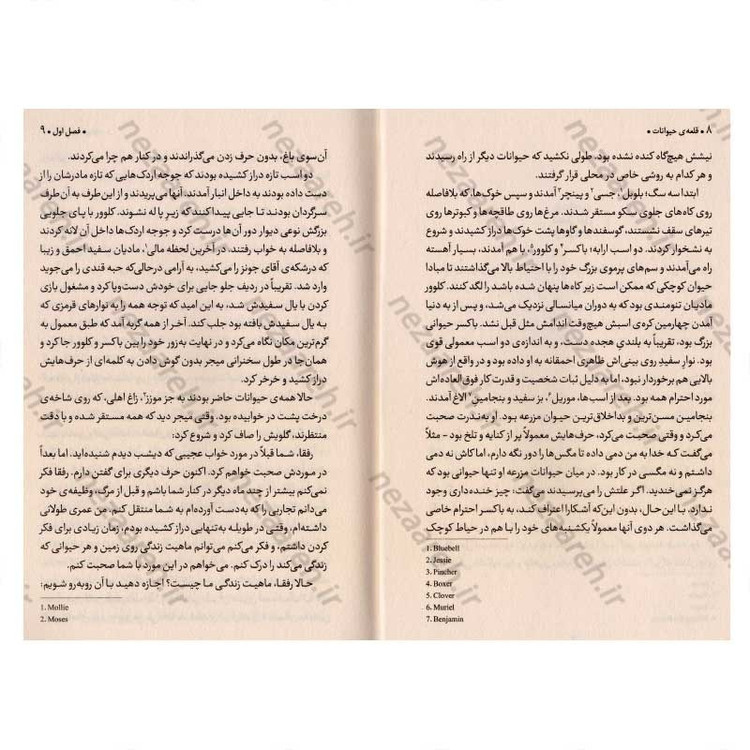 ۸ • قلعه‌ی حیوانات •
نیشش هیچ‌گاه کنده نشده بود. طولی نکشید که حیوانات دیگر از راه رسیدند
و هر کدام به روشی خاص در محلی قرار گرفتند.
ابتدا سه سگ؛ بلوبل۱، جسی۲ و پینچر۳ آمدند و سپس خوک‌ها، که بلافاصله
روی کاه‌های جلوی سکو مستقر شدند. مرغ‌ها روی طاقچه‌ها و کبوترها روی
تیرهای سقف نشستند، گوسفندها و گاوها پشت خوک‌ها دراز کشیدند و شروع
به نشخوار کردند. دو اسب ارابه؛ باکسر۴ و کلوور۵، با هم آمدند، بسیار آهسته
راه می‌آمدند و سم‌های پرموی بزرگ خود را با احتیاط بالا می‌گذاشتند تا مبادا
حیوان کوچکی که ممکن است زیر کاه‌ها پنهان شده باشد را لگد کنند. کلوور
مادیان تنومندی بود که به دوران میانسالی نزدیک می‌شد، و پس از به دنیا
آمدن چهارمین کره‌ی اسبش هیچ‌وقت اندامش مثل قبل نشد. باکسر حیوانی
بزرگ بود، تقریباً به بلندیِ هجده دست، و به اندازه‌ی دو اسب معمولی قوی
بود. نوارِ سفیدِ روی بینی‌اش ظاهری احمقانه به او داده بود و در واقع از هوش
بالایی هم برخوردار نبود، اما به دلیل ثبات شخصیت و قدرت کار فوق‌العاده‌اش
مورد احترام همه بود. بعد از اسب‌ها، موریل۶، بز سفید و بنجامینِ۷ الاغ آمدند.
بنجامین مسن‌ترین و بداخلاق‌ترین حیوان مزرعه بود. او به‌ندرت صحبت
می‌کرد و وقتی صحبت می‌کرد، حرف‌هایش معمولاً پر از کنایه و تلخ بود - مثلاً
می‌گفت که خدا به من دمی داده تا مگس‌ها را دور نگه دارم، اما کاش نه دمی
داشتم و نه مگسی در کار بود. در میان حیوانات مزرعه او تنها حیوانی بود که
هرگز نمی‌خندید. اگر علتش را می‌پرسیدند می‌گفت: چیز خنده‌داری وجود
ندارد. با این‌حال، بدون این‌که آشکارا اعتراف کند، به باکسر احترام خاصی
می‌گذاشت. هر دوی آنها معمولاً یکشنبه‌های خود را با هم در حیاط کوچک
1. Bluebell
2. Jessie
3. Pincher
4. Boxer
5. Clover
6. Muriel
7. Benjamin
• فصل اول • ۹
آن‌سوی باغ، بدون حرف زدن می‌گذراندند و در کنار هم چرا می‌کردند.
دو اسب تازه دراز کشیده بودند که جوجه اردک‌هایی که تازه مادرشان را از
دست داده بودند به داخل انبار آمدند. آنها می‌پریدند و از این‌طرف به آن‌طرف
سرگردان بودند تا جایی پیدا کنند که زیر پا له نشوند. کلوور با پای جلویی
بزرگش نوعی دیوار دور آن‌ها درست کرد و جوجه اردک‌ها داخل آن لانه کردند
و بلافاصله به خواب رفتند. در آخرین لحظه مالی۱، مادیان سفید احمق و زیبا
که درشکه‌ی آقای جونز را می‌کشید، به آرامی درحالی‌که حبه قندی را می‌جوید
وارد شد. تقریباً در ردیف جلو جایی برای خودش دست‌وپا کرد و مشغول بازی
کردن با یال سفیدش شد، به این امید که توجه همه را به نوارهای قرمزی که
به یال سفیدش بافته بود جلب کند. آخر از همه گربه آمد که طبق معمول به
گرم‌ترین مکان نگاه می‌کرد و در نهایت به‌زور خود را بین باکسر و کلوور جا کرد و
همان‌جا در طول سخنرانی میجر بدون گوش دادن به کلمه‌ای از حرف‌هایش
دراز کشید و خرخر کرد.
حالا همه‌ی حیوانات حاضر بودند به جز موزز۲، زاغ اهلی، که روی شاخه‌ی
درخت پشت در خوابیده بود. وقتی میجر دید که همه مستقر شده و با دقت
منتظرند، گلویش را صاف کرد و شروع کرد:
رفقا، شما قبلاً در مورد خواب عجیبی که دیشب دیدم شنیده‌اید. اما بعداً
در موردش صحبت خواهم کرد. اکنون حرف دیگری برای گفتن دارم. رفقا فکر
نمی‌کنم بیشتر از چند ماه دیگر در کنار شما باشم و قبل از مرگ، وظیفه‌ی خود
می‌دانم تجاربی را که به‌دست آورده‌ام به شما منتقل کنم. من عمری طولانی
داشته‌ام، وقتی در طویله به‌تنهایی دراز کشیده بودم، زمان زیادی برای فکر
کردن داشتم، و فکر می‌کنم می‌توانم ماهیت زندگی روی زمین و هر حیوانی که
زندگی می‌کند را درک کنم. می‌خواهم در این مورد با شما صحبت کنم.
حالا رفقا، ماهیت زندگی ما چیست؟ اجازه دهید با آن روبه‌رو شویم:
1. Mollie
2. Moses
nezaareh.ir